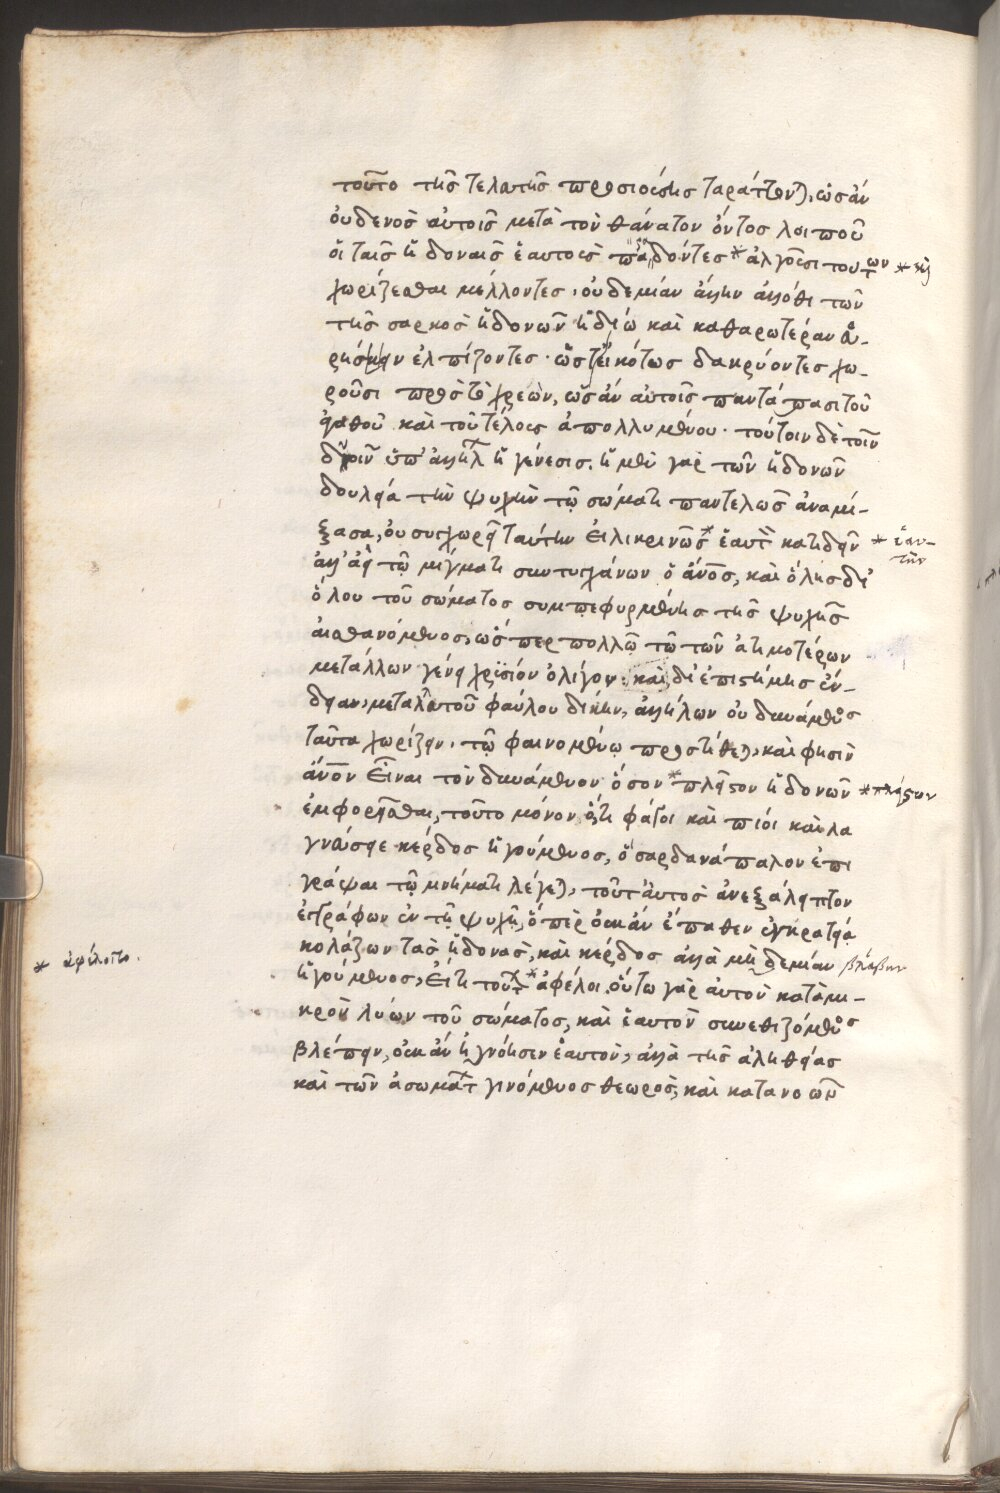 τοῦτο τῆς τελευτῆς προσιούσης ταράττονται, ὡς ἂν
οὐδενὸς αὐτοῖς μετὰ τὸν θάνατον ὄντος λοιποῦ
οἱ ταῖς ἡδοναῖς ἑαυτοὺς παραδόντες * ἀλγοῦσι τούτων * κỳ
χωρίζεσθαι μέλλοντες, οὐδεμίαν ἄλλην ἄλλοθι τῶν
τῆς σαρκὸς ἡδονῶν ἡδίω καὶ καθαρωτέραν εὑ-
ρήσειν ἐλπίζοντες. ὥστ' εἰκότως δακρύοντες χω-
ροῦσι πρὸς τὸ χρεὼν, ὡς ἂν αὐτοῖς παντάπασι τοῦ
ἀγαθοῦ καὶ τοῦ τέλους ἀπολλυμένου. τούτοιν δὲ τοῖν
δυοῖν ὑπ' ἀλλήλων ἡ γένεσις. ἡ μὲν γὰρ τῶν ἡδονῶν
δουλεία τὴν ψυχὴν τῷ σώματι παντελῶς ἀναμί-
ξασα, οὐ συγχωρεῖ ταύτην εἰλικρινῶς * ἑαυτὴν κατιδεῖν * ἑαυ-
τὴν
ἀλλ' ἀεὶ τῷ μίγματι συντυγχάνων ὁ ἄνος, καὶ ὅλης δι'
ὅλου τοῦ σώματος συμπεφυρμένης τῆς ψυχῆς
αἰσθανόμενος, ὥσπερ πολλῷ τῷ τῶν ἀτιμοτέρων
μετάλλων γένει χρυσίον ὀλίγον, καὶ δι' ἐπιστήμης ἔν-
δειαν, μετάλλου τοῦ φαύλου δίκην, ἀλλήλων οὐ δυνάμενος
ταῦτα χωρίζειν, τῷ φαινομένῳ προστίθεται, καὶ φησὶν
ἄνον εἶναι τὸν δυνάμενον ὅσον * πλεῖστον ἡδονῶν * πλείστων
ἐμφορεῖσθαι, τοῦτο μόνον ὅτι φάγοι καὶ πίοι καὶ λα
γνεύσειε κέρδος ἡγούμενος, ὃ σαρδανάπαλον ἐπι
γράψαι τῷ μνήματι λέγεται, τοῦτ' αὐτὸς ἀνεξάλειπτον
ἐγγράφων ἐν τῇ ψυχῇ, ὅπερ οὐκ ἂν ἔπαθεν ἐγκρατείᾳ
κολάζων τὰς ἡδονὰς, καὶ κέρδος ἀλλὰ μὴ δεμίαν βλάβην
* ἀφέλοιτο. ἡγούμενος, εἴ τι τούτων * ἀφέλοι. οὕτω γὰρ αὐτὸν κατὰ μι-
κρὸν λύων τοῦ σώματος, καὶ ἑαυτὸν συνεθιζόμενος
βλέπειν, οὐκ ἂν ἠγνόησεν ἑαυτὸν, ἀλλὰ τῆς ἀληθείας
καὶ τῶν ἀσωμάτων γινόμενος θεωρὸς, καὶ κατανοῶν